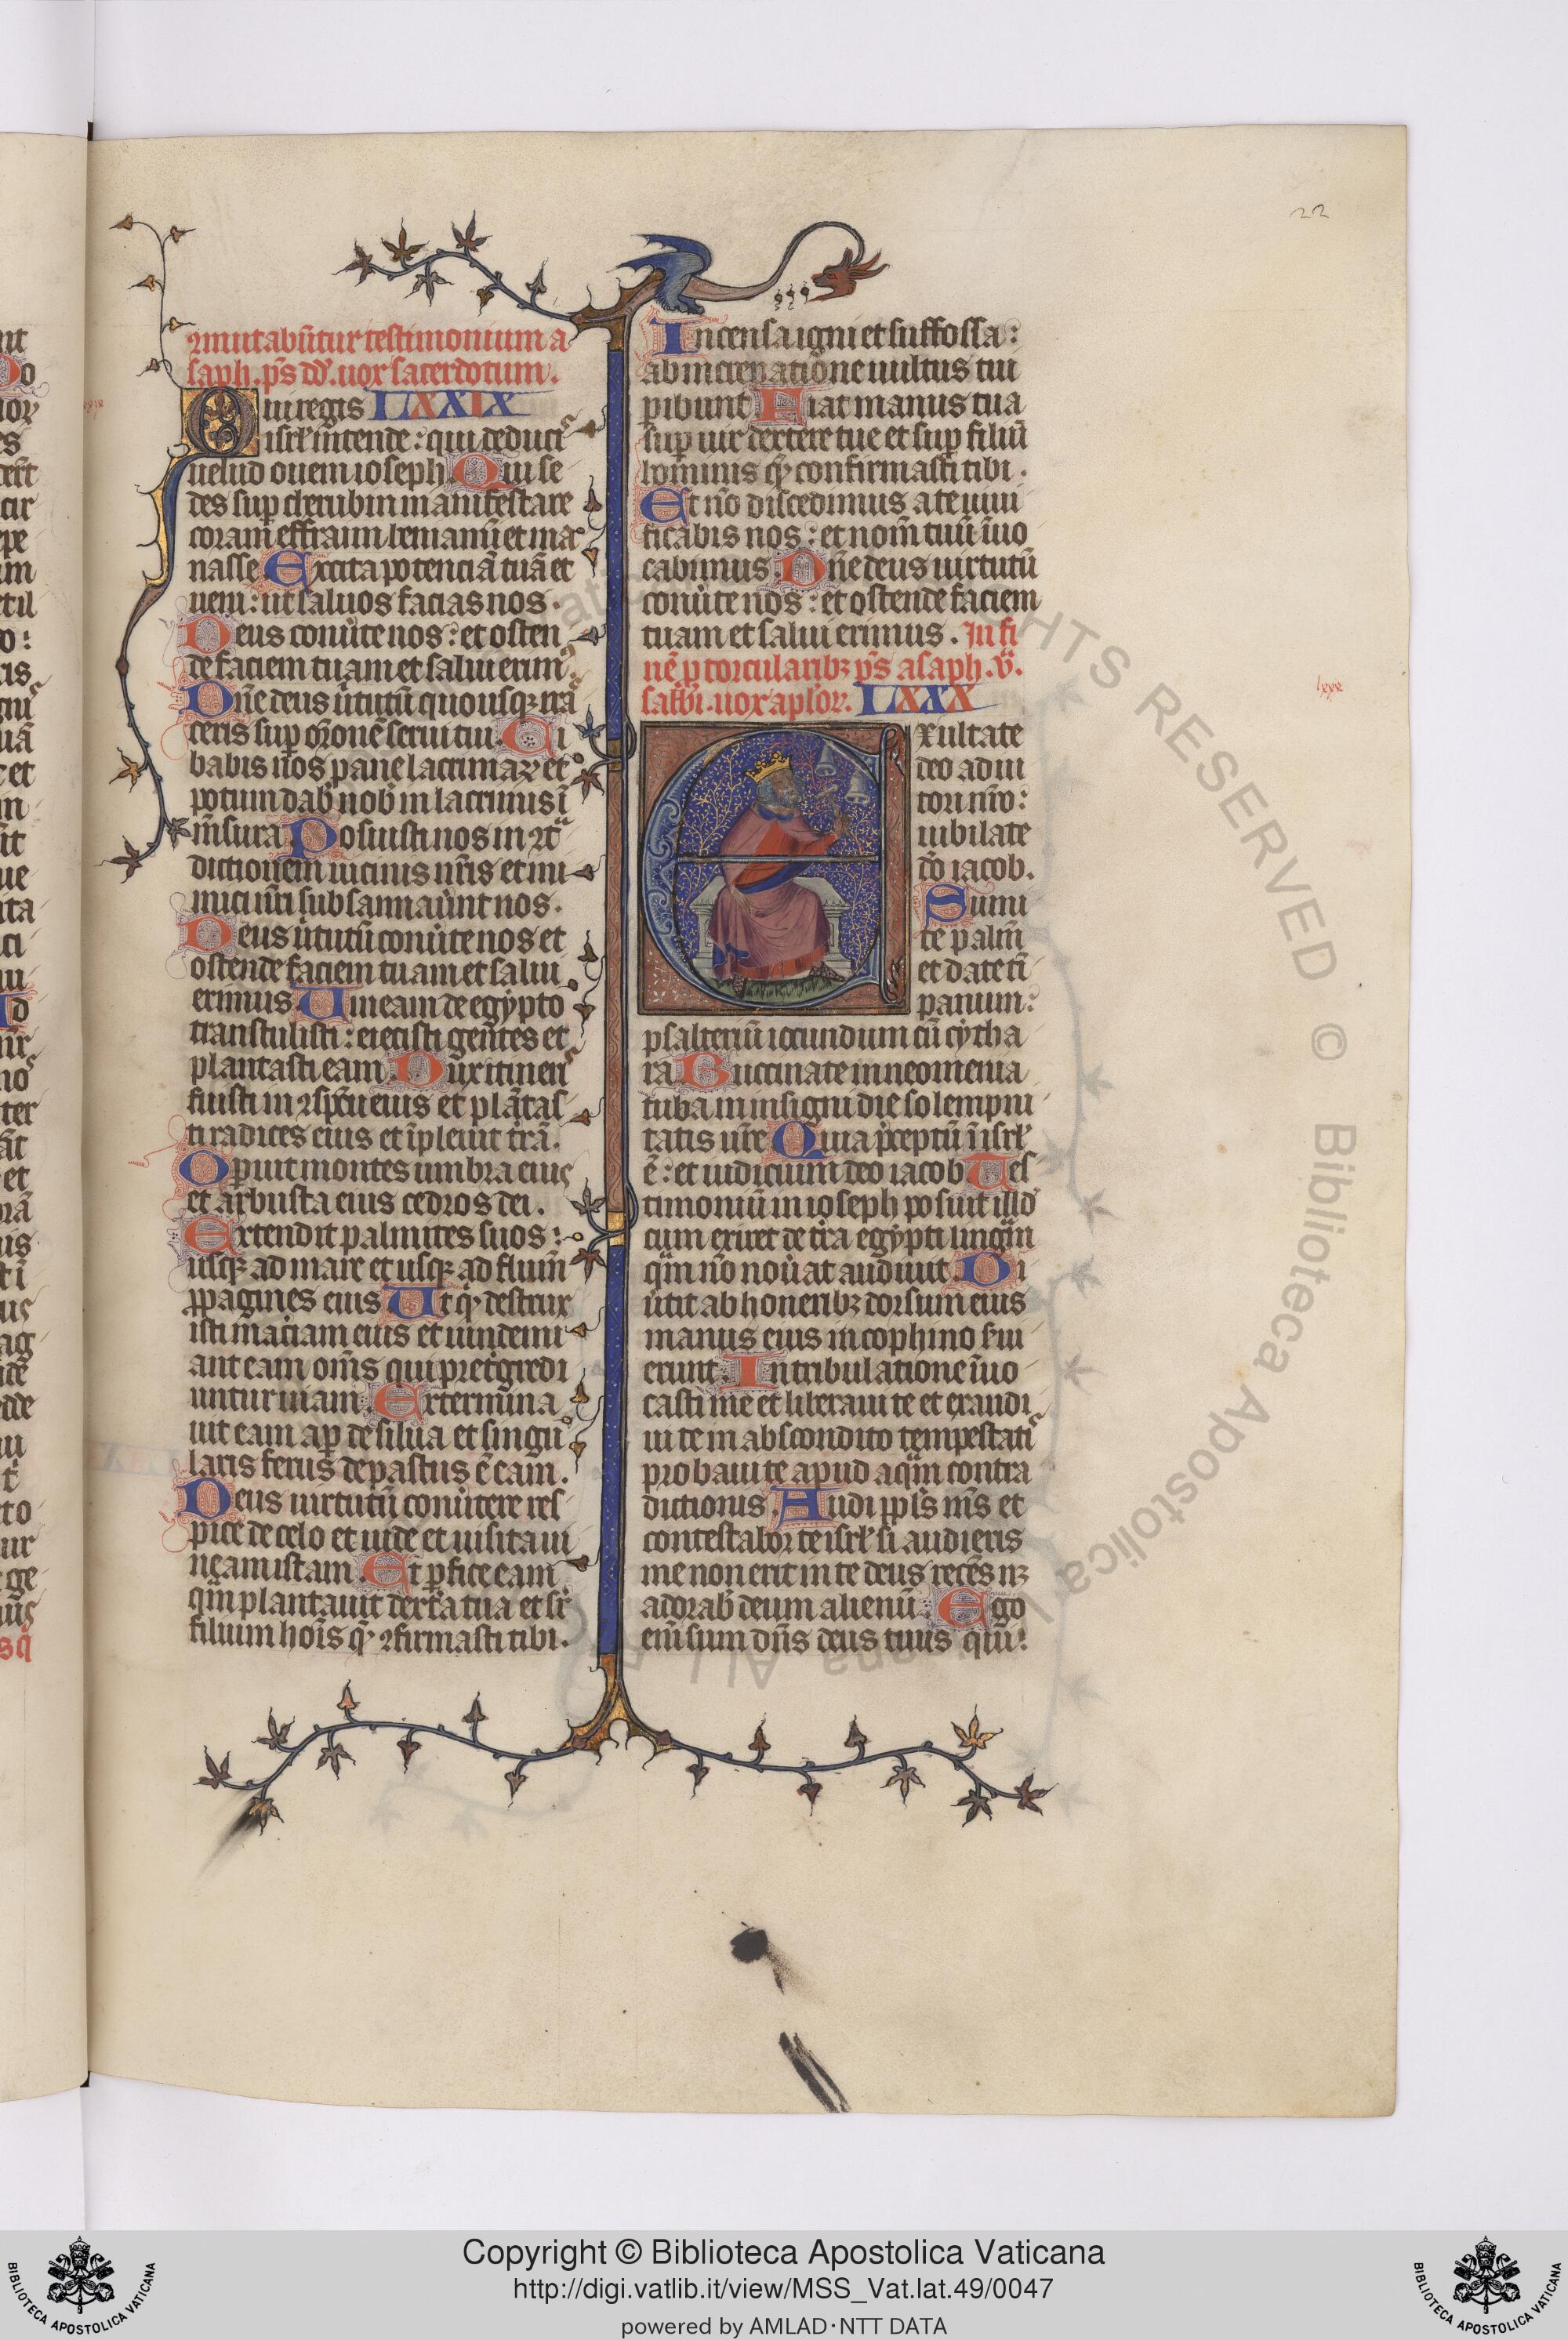 22
ꝯmutabūtur testimonium a
saph. p̄s dd̄. uox sacerdotum.
Qui regis LXXIX
isrł intende: qui deducis
uelud ouem ioseph. Qui se
des suꝑ cherubin manifestare
coram effraim beniamī et ma
nasse. Excita potenciā tuā et
ueni: ut saluos facias nos.
Deus conu̾te nos: et osten
de faciem tuam et salui erimꝰ.
Dn̄e deus u̾tutū quousqꝫ iras
ceris suꝑ or̄onē serui tui. Ci
babis nos pane lacrimaꝝ et
potum dab̾ nob̾ in lacrimis ī
m̄sura. Posuisti nos in ꝯtͣ
dictionem uicinis nr̄is et ini
mici nr̄i subsannau̾nt nos.
Deus u̾tutū conu̾te nos et
ostende faciem tuam et salui
erimus. Uineam de egypto
transtulisti: eiecisti gentes et
plantasti eam. Dux itineris
fuisti in ꝯspc̄u eius et plātas
ti radices eius et īpleuit t̾rā.
Oꝑuit montes umbra eius
et arbusta eius cedros dei.
Extendit palmites suos:
usqꝫ ad mare et usqꝫ ad flum̄
ꝓpagines eius. Ut qͥd destrux
isti maciam eius et uindemi
ant eam om̄s qui pretgredi
untur uiam. Extermina
uit eam aꝑ de silua et singu
laris ferus depastus ē eam.
Deus uirtutū conu̾tere res
pice de celo et uide et uisita ui
neam istam. Et ꝑfice eam
qͣm plantauit dext̾a tua et sr̄
filium hoīs qͥ ꝯfirmasti tibi.
Incensa igni et suffossa:
ab increpatione uultus tui
ꝑibunt. Fiat manus tua
suꝑ uir dextere tue et suꝑ filiū
hominis qͥ confirmasti tibi.
Et nō discedimus a te uiui
ficabis nos: et nom̄ tuū īuo
cabimus. Dn̄e deus uirtutū
conu̾te nos: et ostende faciem
tuam et salui erimus. In fi
nē ꝑ torcularibꝫ p̄s asaph. v̄.
sabb̄i. uox apl̄oꝝ. LXXX
lxxx
Exultate
deo adiu
tori nr̄o:
iubilate
dō iacob.
Sumi
te psalm̄
et date tī
panum:
psalteriū iocundum cū cytha
ra. Buccinate in neomenia
tuba in insigni die solempni
tatis ur̄e. Quia p̄ceptū ī isrł
ē: et iudicium deo iacob. Tes
timoniū in ioseph posuit illd̾
cum exiret de t̾ra egypti lingͣm
qͣm nō nou̾at audiuit. Di
u̾tit ab honeribꝫ dorsum eius
manus eius in cophino s̾ui
erunt. In tribulatione īuo
casti me et liberaui te et exaudi
ui te in abscondito tempestatis
probaui te apud aqͣm contra
dictionis. Audi ppl̄s m̄s et
contestabor te isrł si audieris
me non erit in te deus recēs nꝫ
adorab̾ deum alienū. Ego
eni̅ sum dn̄s deus tuus qui:
Copyright © Biblioteca Apostolica Vaticana
http://digi.vatlib.it/view/MSS_Vat.lat.49/0047
powered by AMLAD·NTT DATA
BIBLIOTECA APOSTOLICA VATICANA
BIBLIOTECA APOSTOLICA VATICANA